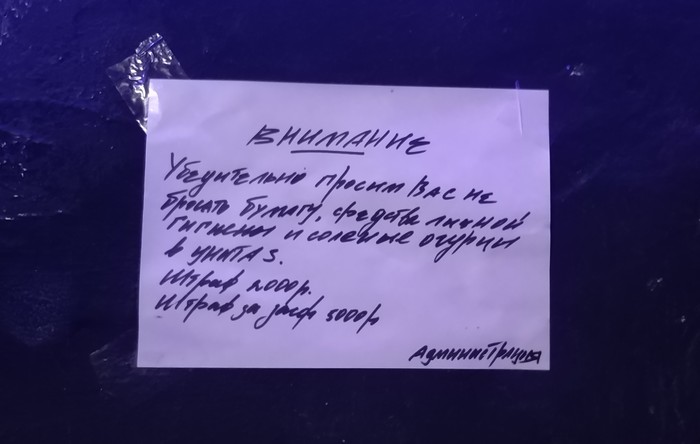 ВНИМАНИЕ
Убедительно просим Вас не
бросать бумагу, средства личной
гигиены и соленые огурцы
в унитаз.
Штраф 2000р.
Штраф за 5000р
Администрация